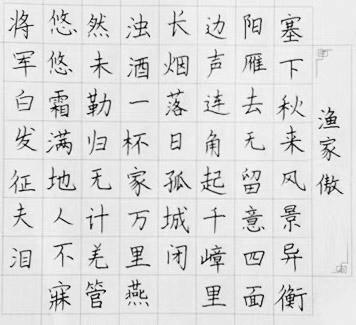 渔家傲
塞下秋来风景异衡
阳雁去无留意四面
边声连角起千嶂里
长烟落日孤城闭
浊酒一杯家万里燕
然未勒归无计羌管
悠悠霜满地人不寐
将军白发征夫泪